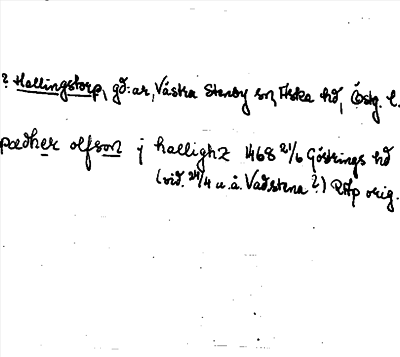 ? Hallingstorp, gd:ar, Västra Stenby sn, Aska hd, Östg. l.
pædher olfson j hallighz 1468 21/6 Göstrings hd
(vid. 24/4 u.å. Vadstena ?) RAp orig.